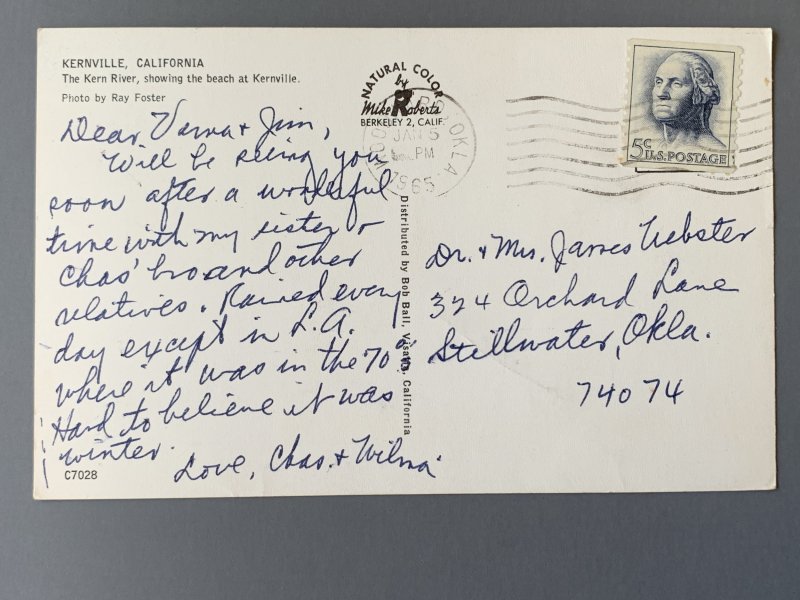 KERNVILLE, CALIFORNIA
The Kern River, showing the beach at Kernville.
Photo by Ray Foster
Dear Verna + Jim,
Will be seeing you
soon after a wonderful
time with my sister &
Chas' bro and other
relatives. Rained every
day except in L.A.
where it was in the 70's.
Hard to believe it was
winter.
Love, Chas. + Wilma
C7028
NATURAL COLOR
by
Mike Roberts
BERKELEY 2, CALIF.
OKLA.
JAN 5
PM
1965
Distributed by Bob Ball, Visalia, California
5c
U.S. POSTAGE
Dr. + Mrs. James Webster
324 Orchard Lane
Stillwater, Okla.
74074